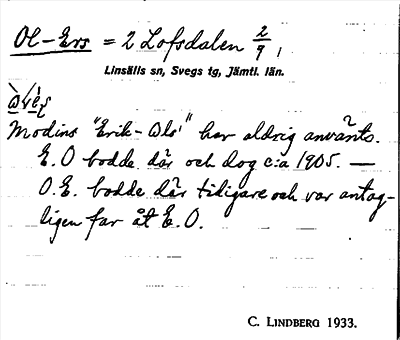 Ol-Ers = 2 Lofsdalen 2/9,
Linsälls sn, Svegs tg, Jämtl. län.
Modins "Erik-Ols" har aldrig använts.
E. O bodde där och dog c:a 1905. —
O. E. bodde där tidigare och var antag-
ligen far åt E. O.
C. LINDBERG 1933.